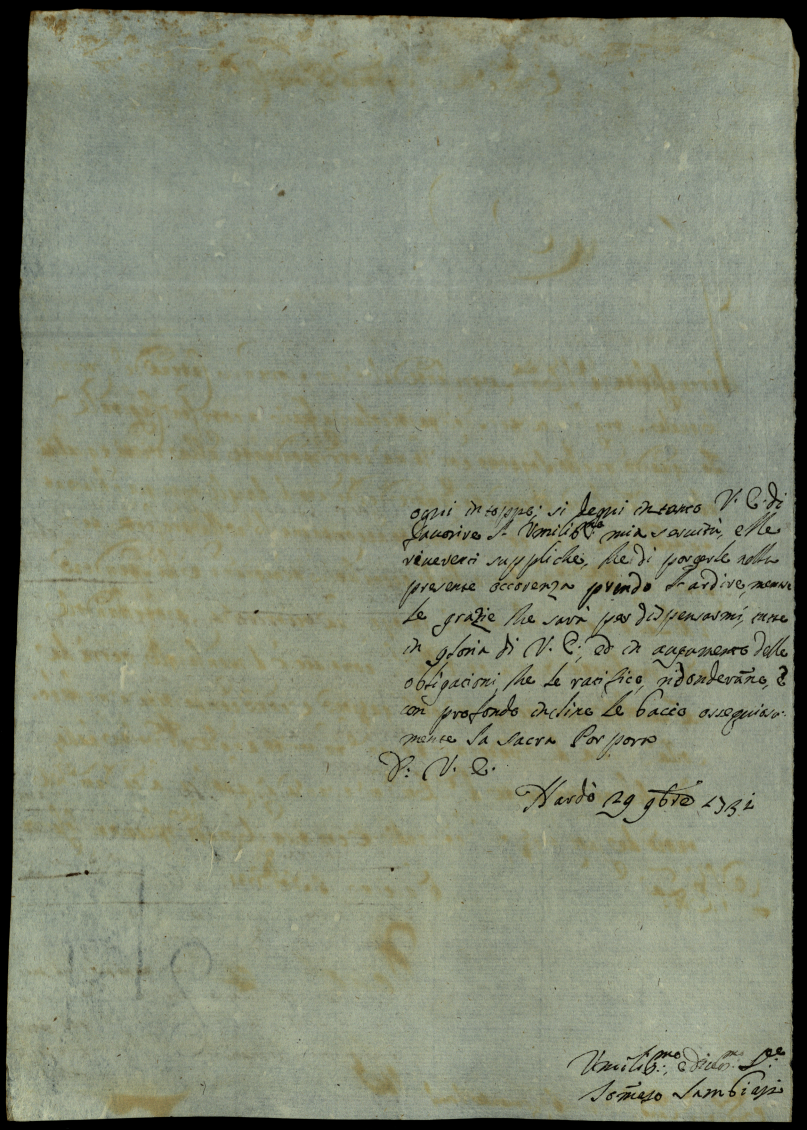 ogni intoppo; si degni intanto V. E. di
favorire l'Umiliss.ma mia servitù, e le
riverenti suppliche, che di porgerle nella
presente occorenza prendo l'ardire, mentre
le grazie che sarà per dispensarmi, tutte
in gloria di V. E., ed in augumento delle
obligacioni, che le ratifico, ridonderanno, e
con profondo inclino le bacio ossequiosa-
mente la sacra Porpora
D: V. E.
Nardò 29 9bre 1731
Umiliss.mo, e
Tomaso Sambiasi